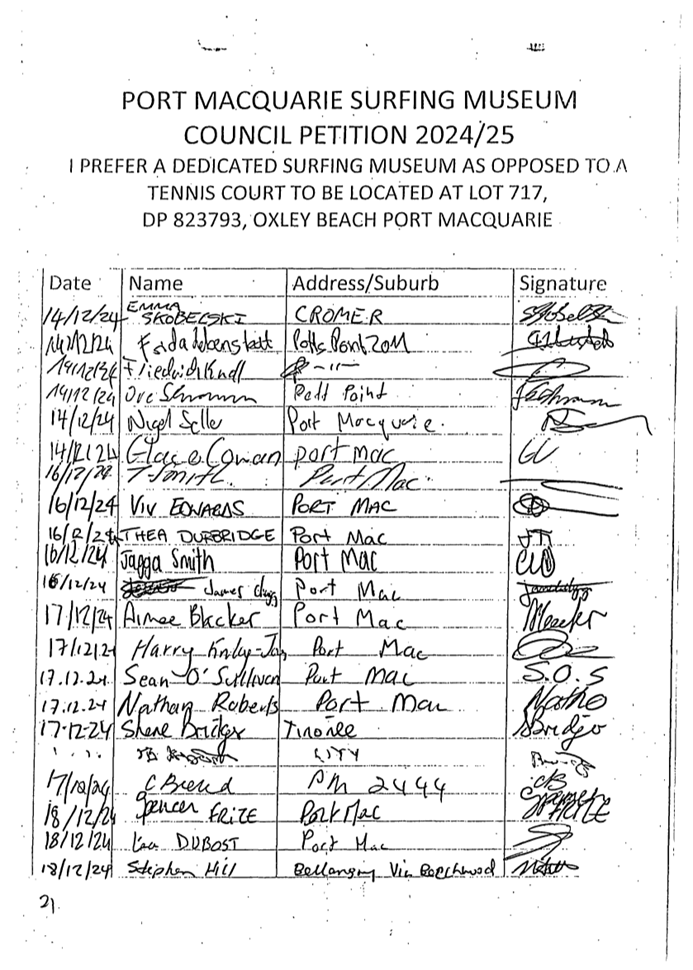 PORT MACQUARIE SURFING MUSEUM
COUNCIL PETITION 2024/25
I PREFER A DEDICATED SURFING MUSEUM AS OPPOSED TO A
TENNIS COURT TO BE LOCATED AT LOT 717,
DP 823793, OXLEY BEACH PORT MACQUARIE
Date Name Address/Suburb Signature
14/12/24 EMMA SKOBELSKI CROMER
14/12/24 Potts Point 2011
14/12/24 -11-
14/12/24 Point
14/12/24 Nigel Port Macquarie.
14/12/24 Cowan port mac
16/12/24 T Smith Port Mac
16/12/24 VIV EDWARDS PORT MAC
16/12/24 THEA DURBRIDGE Port Mac
16/12/24 Jagga Smith Port Mac
16/12/24 James Port Mac
17/12/24 Aimee Blacker Port Mac
17/12/24 Harry Port Mac
17.12.24 Sean O'Sullivan Port Mac S.O.S
17.12.24 Nathan Roberts Port Mac Natho
17-12-24 Shane Bridge Tinonee
CITY
17/12/24 C PM 2444 CB
18/12/24 Spencer FRIZE Port Mac
18/12/24 DUBOST Port Mac
18/12/24 Stephen Hill Bellangry Via Beechwood
21